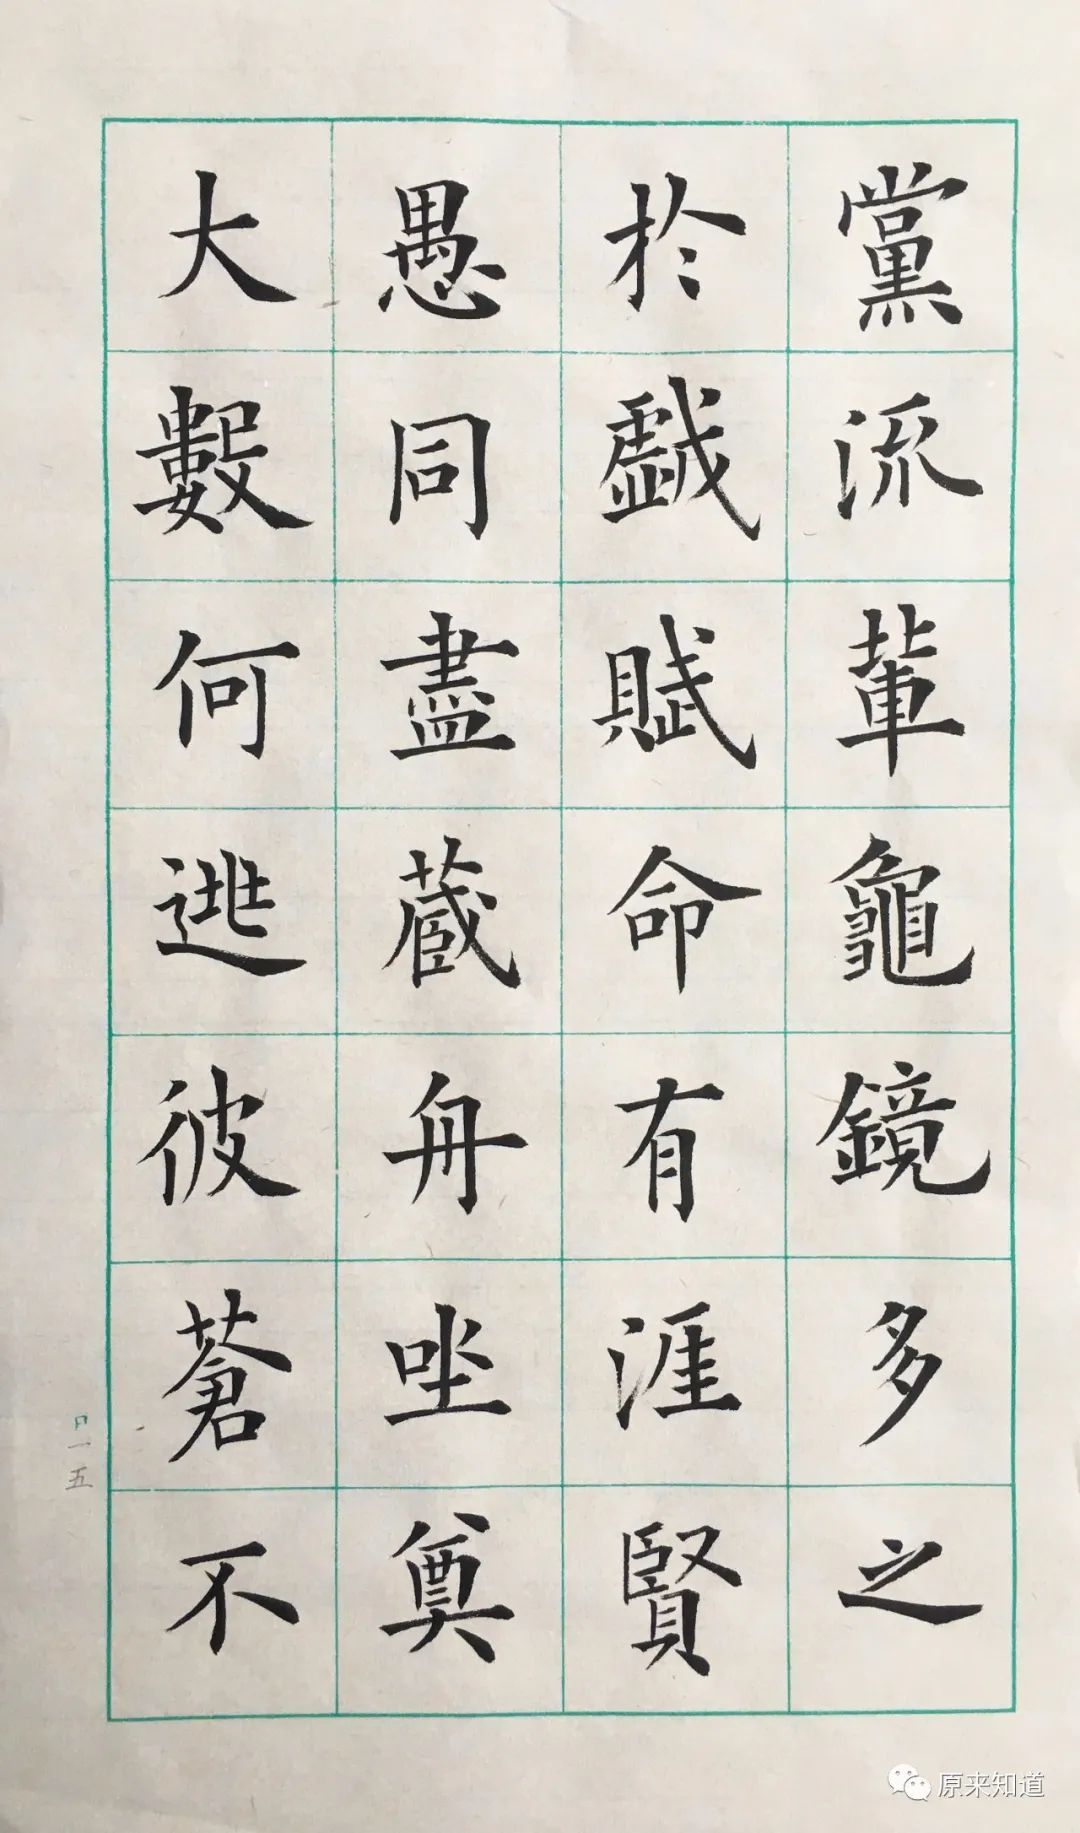 黨流輩龜鏡多之
於戱賦命有涯賢
愚同盡蔵舟㘴奠
大數何逃彼蒼不
P一五
原来知道